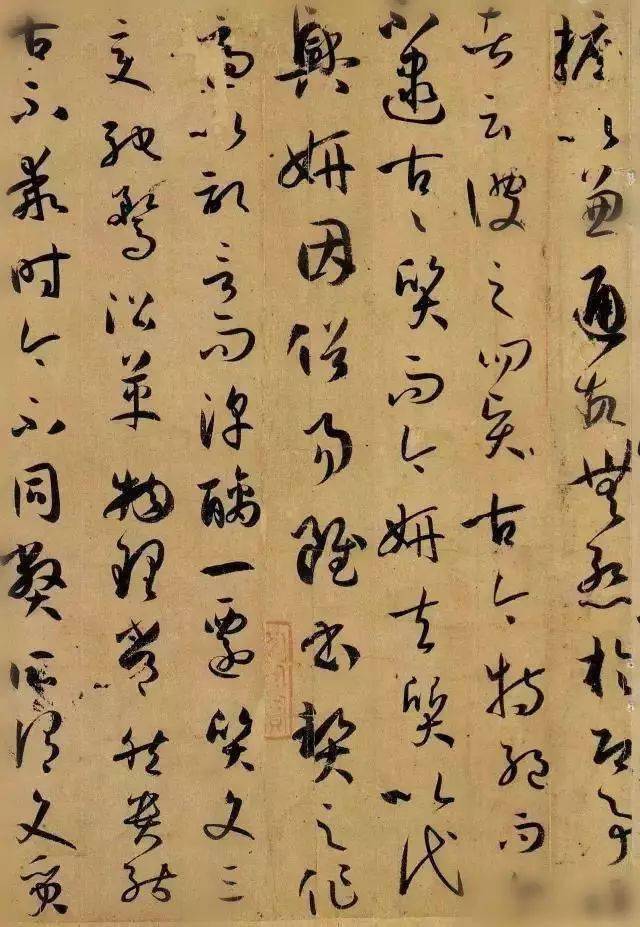 摭以兼通故無慙於即事
者云彼之四賢古今特絕而
不逮古〻質而今妍夫質以代
興妍因俗易雖書契之作
適以記言而淳醨一遷質文三
變馳騖沿革物理常然貴能
古不乖時今不同弊所謂文質